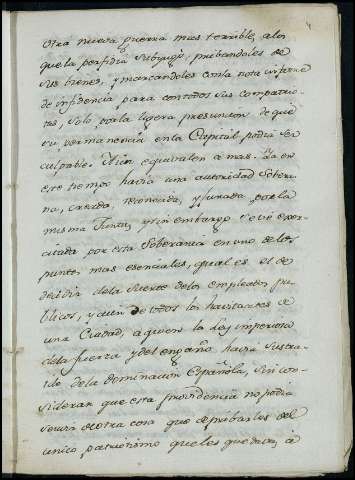 otra nueva guerra mas terrible, a los
que la perfidia subyugó, pribandoles de
sus bienes, y marcandoles con la nota infame
de infidencia para con todos sus compatrio-
tas, solo por la ligera presuncion de que
su permanencia en la Capital podia ser
culpable. Aun equivalen a mas: ya en
este tiempo havia una autoridad Sobera-
na, creada, reconocida, y jurada por la
misma Junta, y sin embargo se vé exer-
citada por esta la Soberania en uno de los
puntos mas esenciales, qual es el de
decidir de la suerte de los empleados pu-
blicos, y aun de todos los havitantes de
una Ciudad, a quien la ley imperiosa
de la fuerza y del engaño havia sustrai-
do de la dominacion Española, sin con-
siderar que esta providencia no podia
servir de otra cosa que de pribarles del
unico patriotismo que les quedava, a